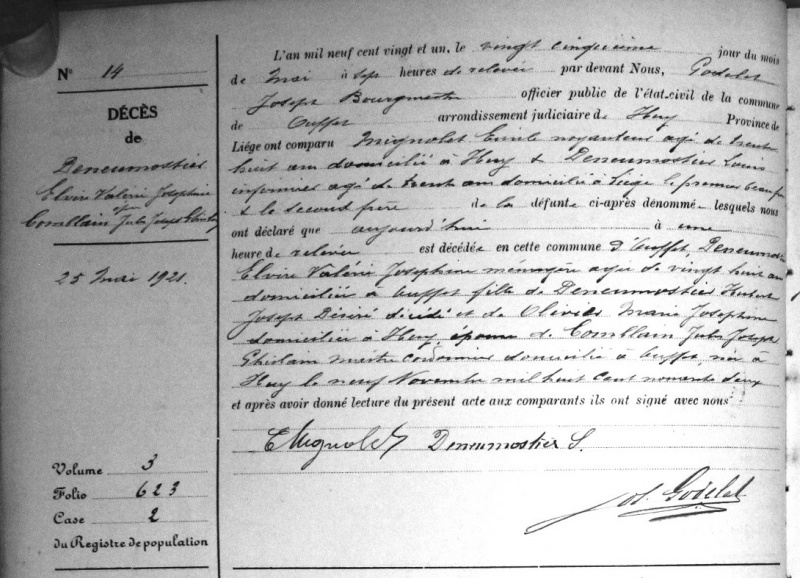 N° 14
DÉCÈS
de
Deneumostier
Elvire Valérie Joséphine
épse
Comblain Jules Joseph Ghislain
25 Mai 1921.
Volume 3
Folio 623
Case 2
du Registre de population
L'an mil neuf cent vingt et un, le vingt cinquième jour du mois
de Mai à sept heures de relevée par devant Nous, Godelet
Joseph Bourgmestre officier public de l'état-civil de la commune
de Ouffet arrondissement judiciaire de Huy Province de
Liége ont comparu Mignolet Emile agé de trente
huit ans domicilié à Huy & Deneumostier Louis
agé de trente ans domicilié à Liège le premier beau frère
& le second frère de la défunte ci-après dénommé lesquels nous
ont déclaré que aujourd'hui à une
heure de relevée est décédée en cette commune d'Ouffet Deneumostier
Elvire Valérie Joséphine ménagère agée de vingt huit ans
domiciliée à Ouffet fille de Deneumostier Hubert
Joseph Désiré décédé et de Olivier Marie Joséphine
domiciliée à Huy, épouse de Comblain Jules Joseph
Ghislain maître cordonnier domicilié à Ouffet, née à
Huy le neuf Novembre mil huit cent nonante deux
et après avoir donné lecture du présent acte aux comparants ils ont signé avec nous
E Mignolet Deneumostier L.
Jos. Godelet